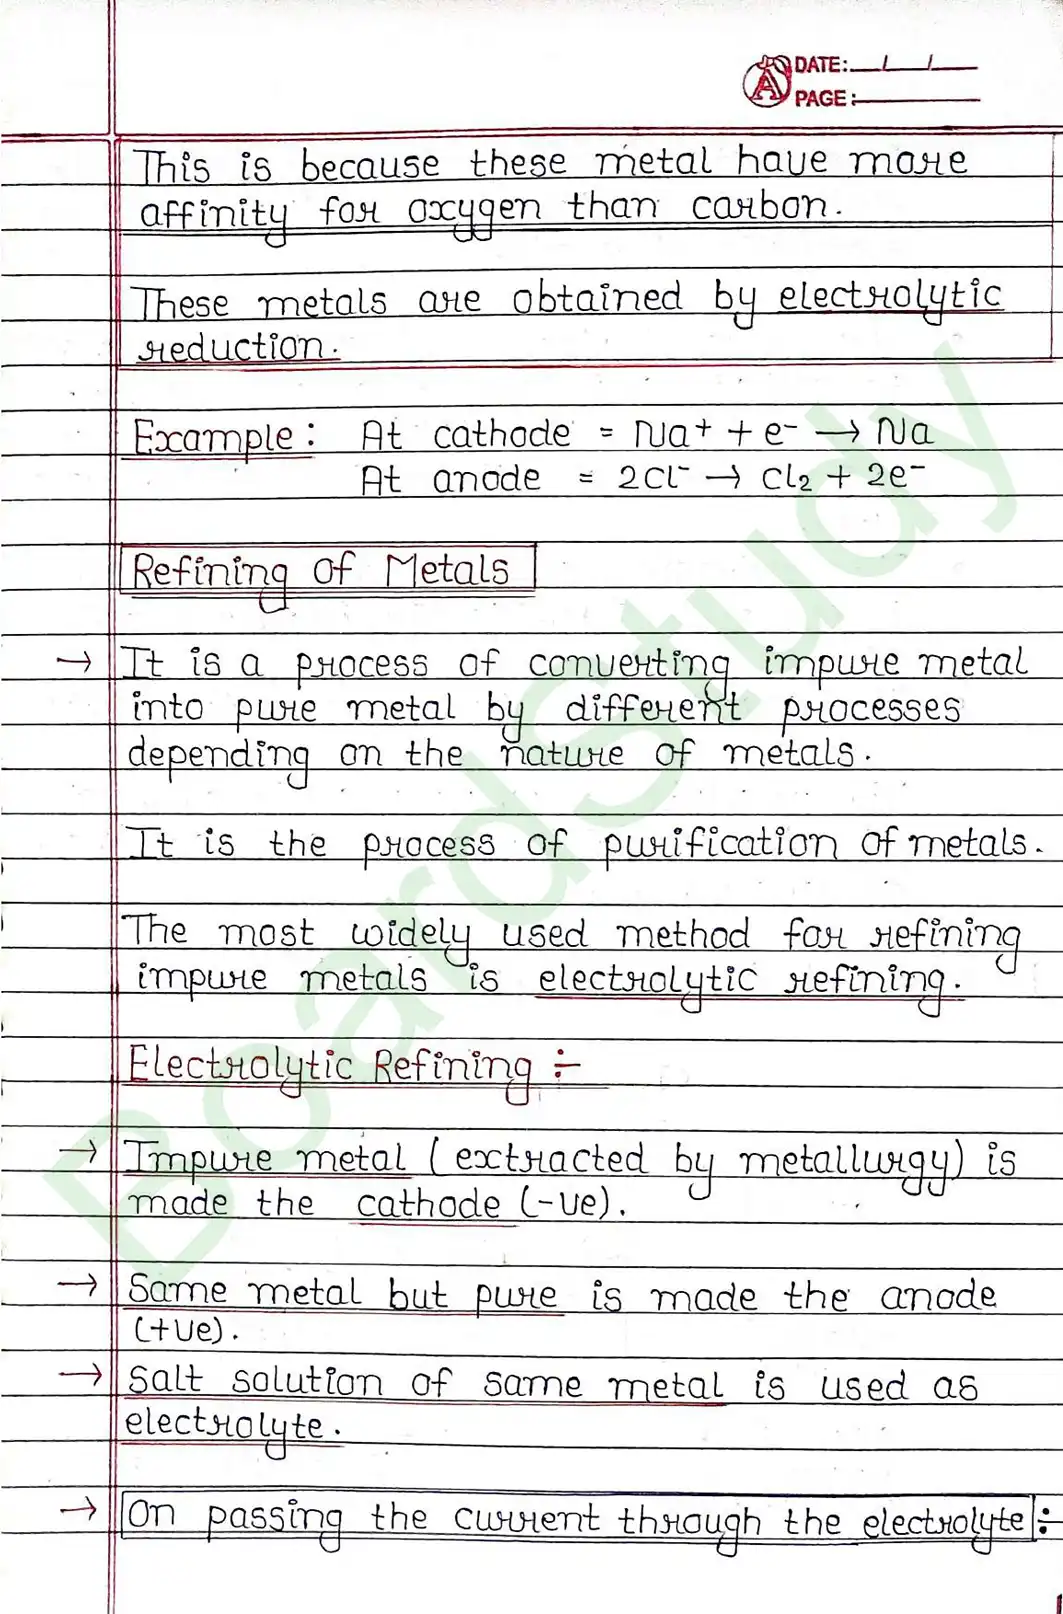 DATE: __/__/__
PAGE:
This is because these metal have more
affinity for oxygen than carbon.
These metals are obtained by electrolytic
reduction.
Example: At cathode = Na⁺ + e⁻ → Na
At anode = 2Cl⁻ → Cl₂ + 2e⁻
Refining of Metals
→ It is a process of converting impure metal
into pure metal by different processes
depending on the nature of metals.
It is the process of purification of metals.
The most widely used method for refining
impure metals is electrolytic refining.
Electrolytic Refining :-
→ Impure metal (extracted by metallurgy) is
made the cathode (-ve).
→ Same metal but pure is made the anode
(+ve).
→ Salt solution of same metal is used as
electrolyte.
→ On passing the current through the electrolyte :-
BoardStudy